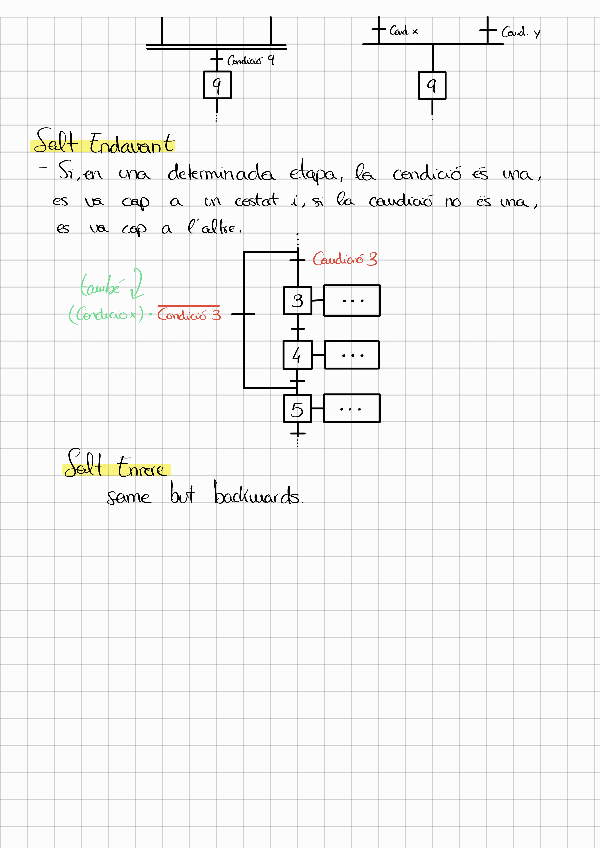 Cond x
Cond. y
Condició 9
9
9
Salt Endavant
- Si, en una determinada etapa, la condició és una,
es va cap a un costat i, si la condició no és una,
es va cap a l'altre.
Condició 3
també
(Condició x) · Condició 3
3 ...
4 ...
5 ...
Salt Enrere
same but backwards.